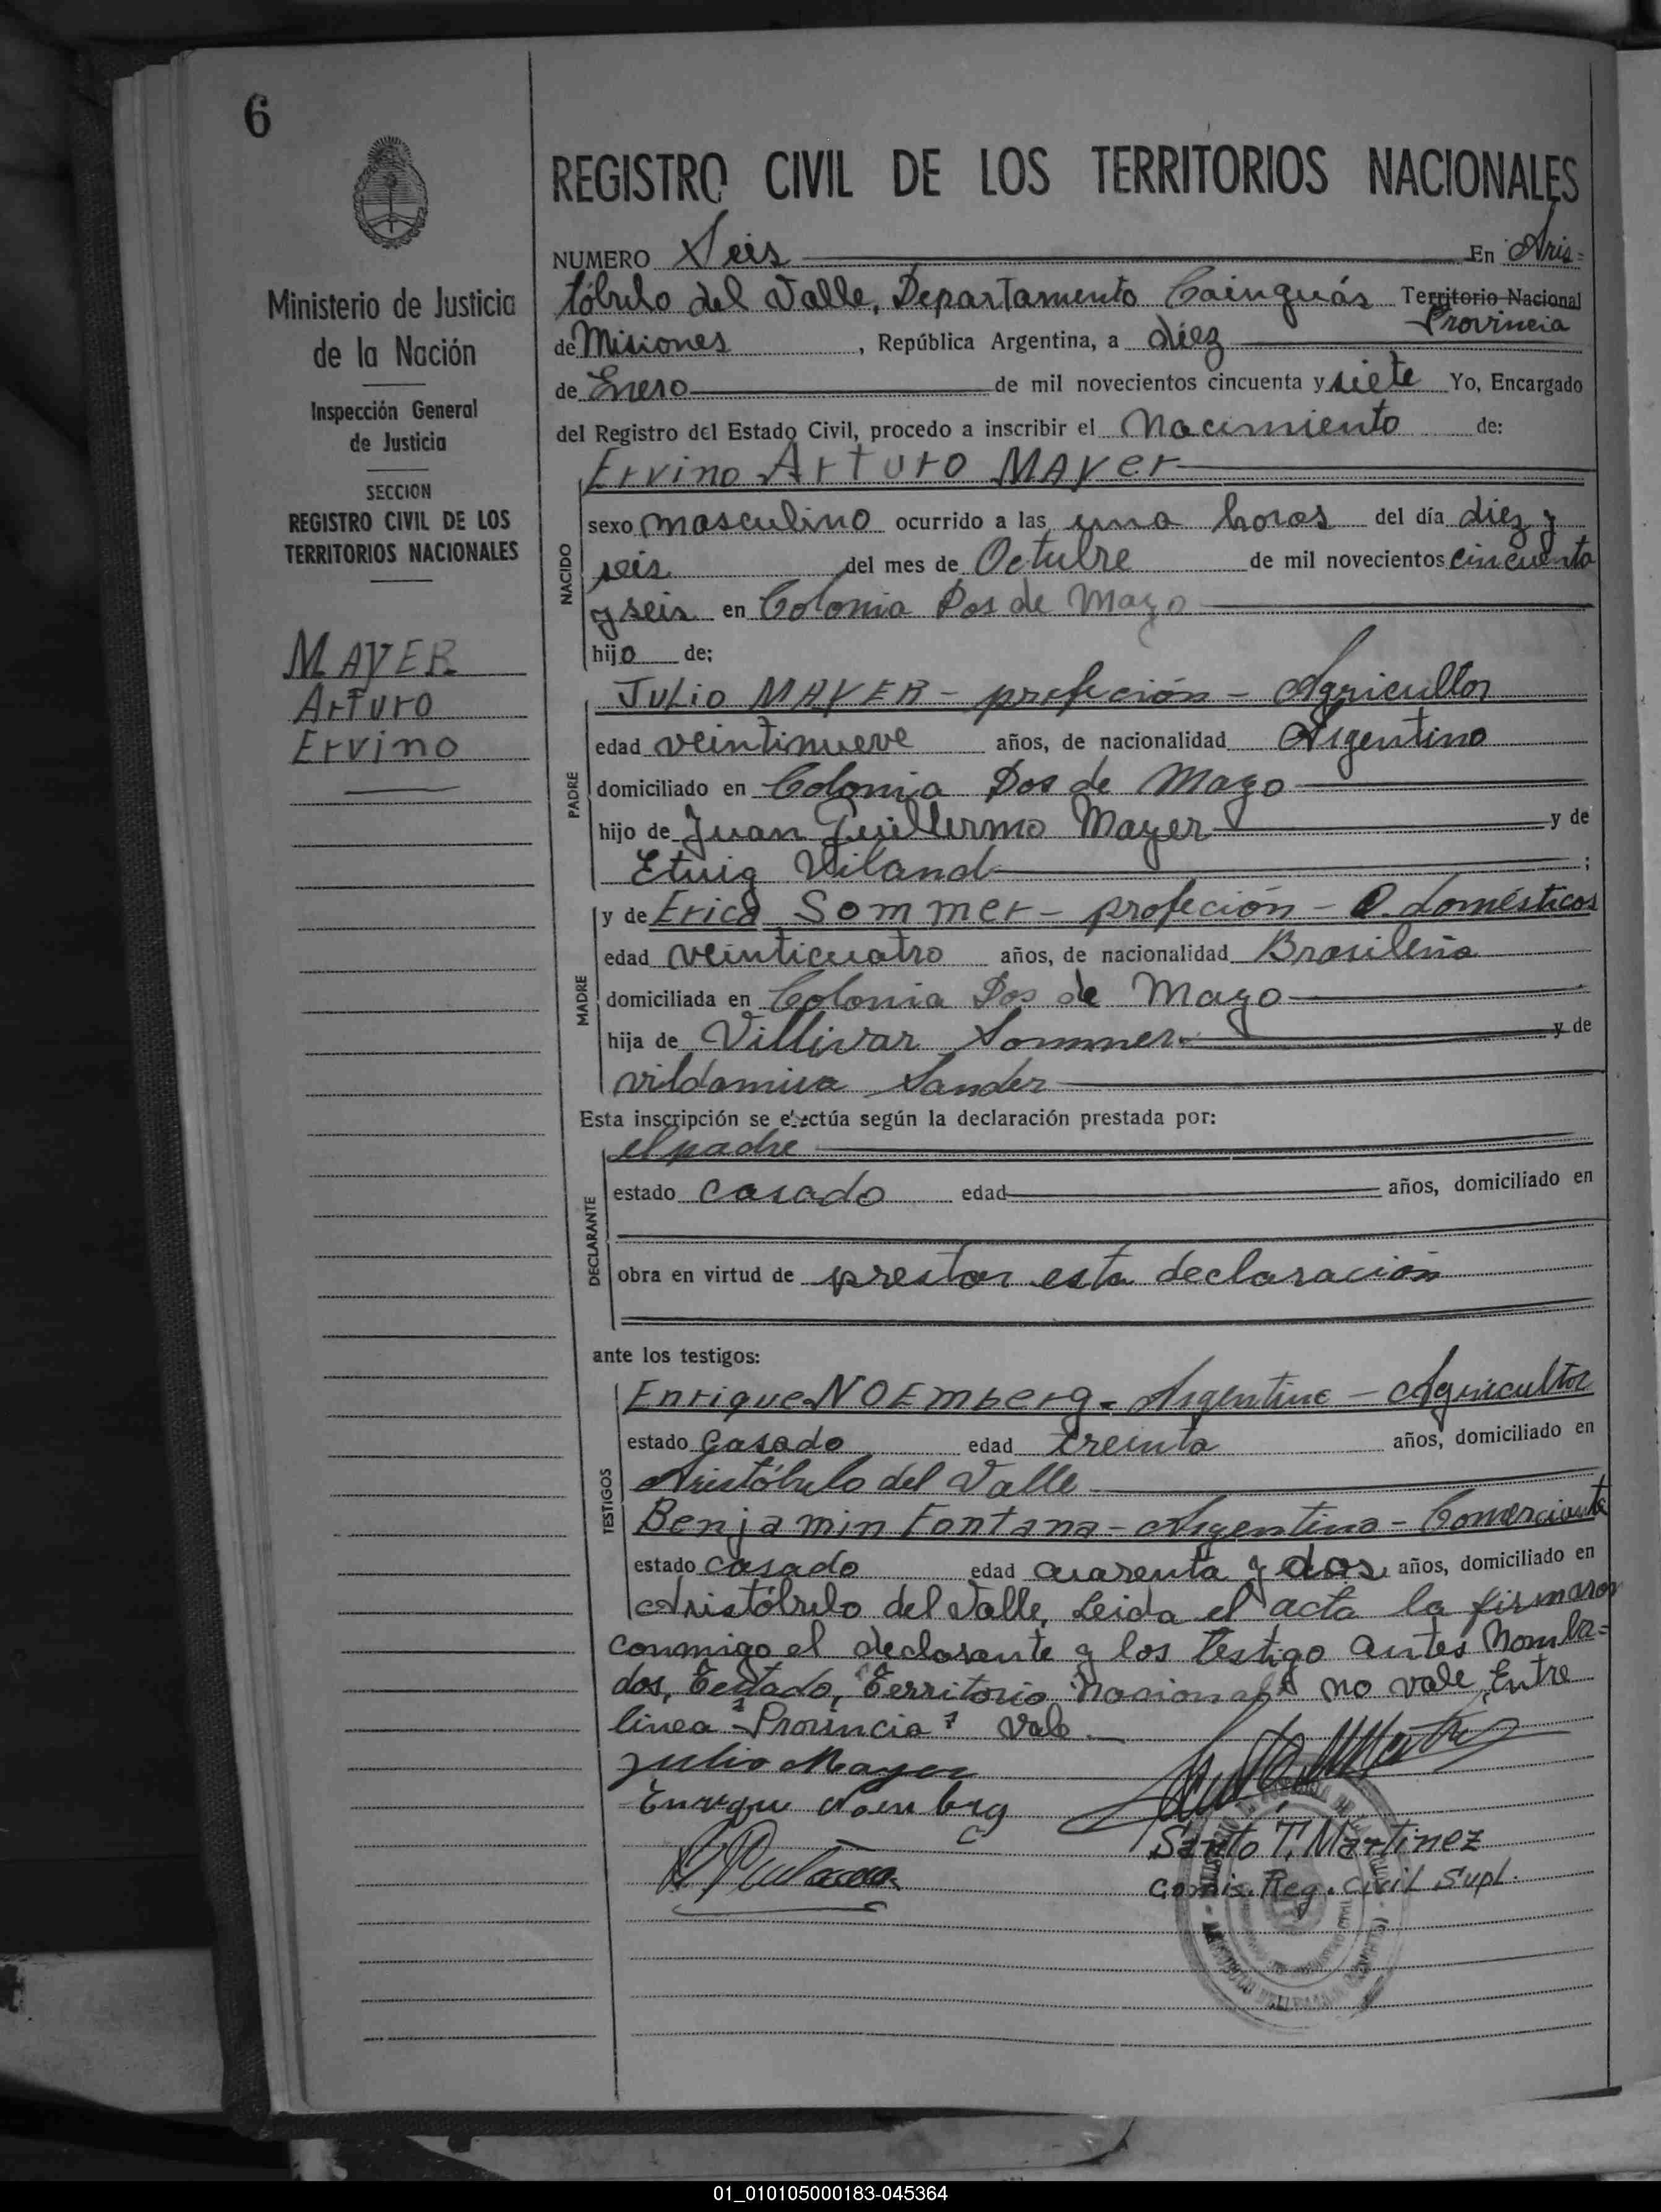 6
REGISTRO CIVIL DE LOS TERRITORIOS NACIONALES
Ministerio de Justicia
de la Nación
Inspección General
de Justicia
SECCION
REGISTRO CIVIL DE LOS
TERRITORIOS NACIONALES
MAYER
Arturo
Ervino
NUMERO Seis En Aris=
tóbulo del Valle, Departamento Cainguás Territorio Nacional
Provincia
de Misiones, República Argentina, a diez
de Enero de mil novecientos cincuenta y siete Yo, Encargado
del Registro del Estado Civil, procedo a inscribir el Nacimiento de:
NACIDO
Ervino Arturo MAYer
sexo masculino ocurrido a las una horas del día diez y
seis del mes de Octubre de mil novecientos cincuenta
y seis en Colonia Dos de Mayo
hijo de:
PADRE
JULio MAYER - profeción - Agricultor
edad veintinueve años, de nacionalidad Argentino
domiciliado en Colonia Dos de Mayo
hijo de Juan Guillermo Mayer y de
Etuig Viland;
MADRE
y de Erica Sommer - profeción - Q. domésticos
edad veinticuatro años, de nacionalidad Brasileña
domiciliada en Colonia Dos de Mayo
hija de Villivar Sommer y de
vildamira Sander
Esta inscripción se efectúa según la declaración prestada por:
DECLARANTE
el padre
estado casado edad años, domiciliado en
obra en virtud de prestar esta declaración
ante los testigos:
TESTIGOS
Enrique NOEmberg - Argentino - Agricultor
estado Casado edad treinta años, domiciliado en
Aristóbulo del Valle
Benjamin Fontana - Argentino - Comerciante
estado casado edad cuarenta y dos años, domiciliado en
Aristóbulo del Valle, Leida el acta la firmaron
conmigo el declarante y los testigo antes nombra=
dos, Testado, "Territorio Nacional" no vale, Entre
linea "Provincia" vale
Julio Mayer
Enrique Noemberg
Santo T. Martinez
Comis. Reg. Civil Supl.
01_010105000183-045364